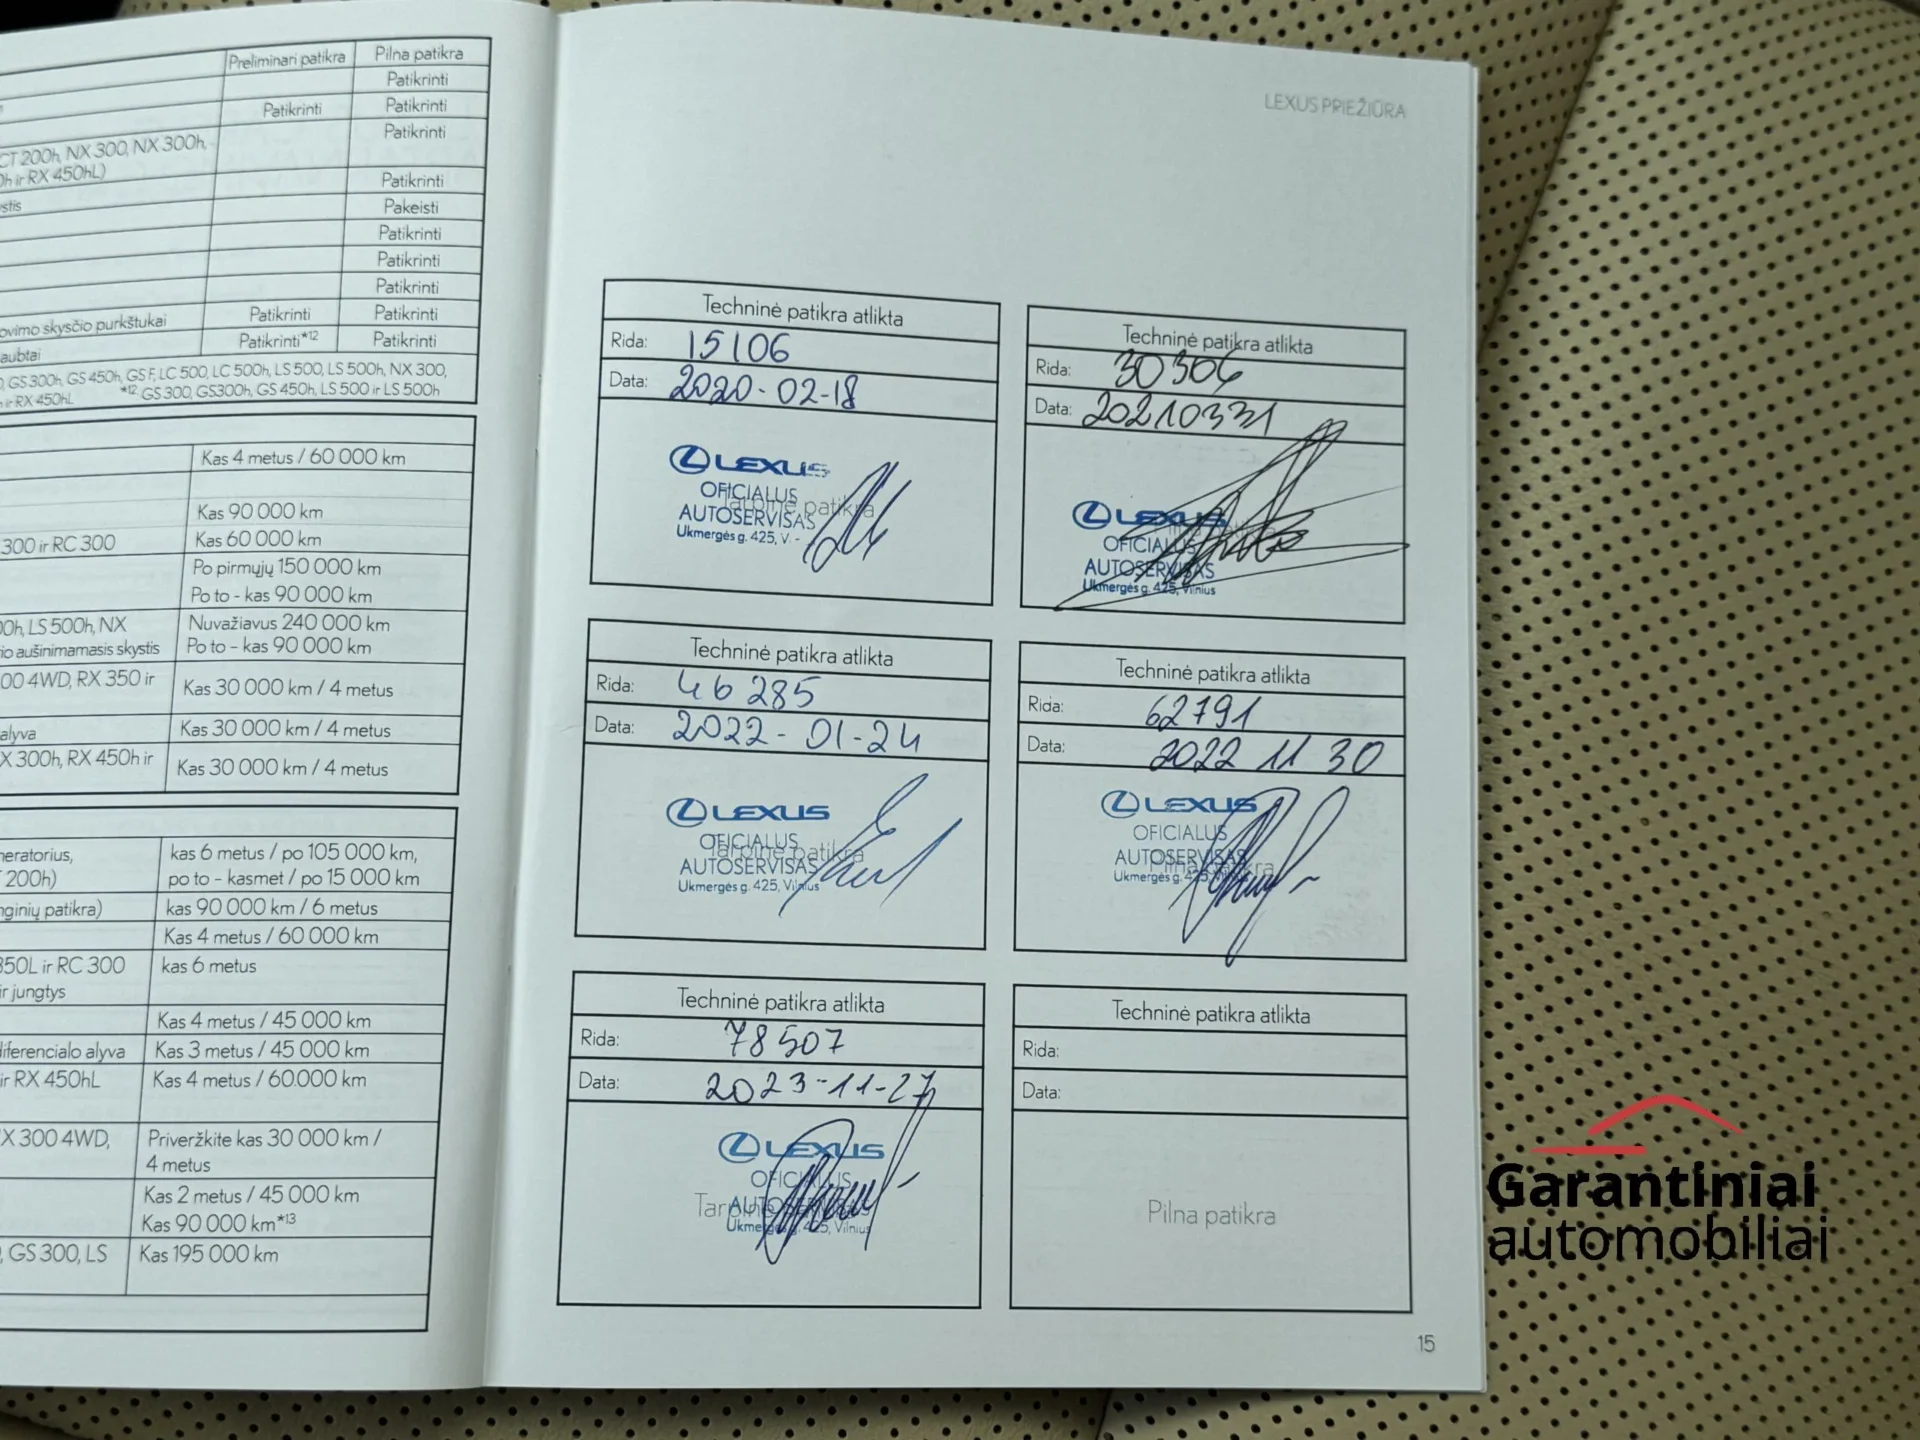 Preliminari patikra Pilna patikra
Patikrinti
Patikrinti Patikrinti
CT 200h, NX 300, NX 300h, Patikrinti
0h ir RX 450hL)
Patikrinti
Pakeisti
Patikrinti
Patikrinti
Patikrinti
ovimo skysčio purkštukai Patikrinti Patikrinti
Patikrinti*12 Patikrinti
GS 300h, GS 450h, GS F, LC 500, LC 500h, LS 500, LS 500h, NX 300,
ir RX 450hL *12: GS 300, GS300h, GS 450h, LS 500 ir LS 500h
Kas 4 metus / 60 000 km
Kas 90 000 km
300 ir RC 300 Kas 60 000 km
Po pirmųjų 150 000 km
Po to - kas 90 000 km
00h, LS 500h, NX Nuvažiavus 240 000 km
io aušinimamasis skystis Po to - kas 90 000 km
00 4WD, RX 350 ir
Kas 30 000 km / 4 metus
alyva Kas 30 000 km / 4 metus
X 300h, RX 450h ir
Kas 30 000 km / 4 metus
neratorius, kas 6 metus / po 105 000 km,
200h) po to - kasmet / po 15 000 km
nginių patikra) kas 90 000 km / 6 metus
Kas 4 metus / 60 000 km
350L ir RC 300 kas 6 metus
ir jungtys
Kas 4 metus / 45 000 km
diferencialo alyva Kas 3 metus / 45 000 km
ir RX 450hL Kas 4 metus / 60.000 km
X 300 4WD, Priveržkite kas 30 000 km /
4 metus
Kas 2 metus / 45 000 km
Kas 90 000 km*13
, GS 300, LS Kas 195 000 km
LEXUS PRIEŽIŪRA
Techninė patikra atlikta
Rida: 15106
Data: 2020-02-18
LEXUS
OFICIALUS
Tarpinė patikra
AUTOSERVISAS
Ukmergės g. 425, V
Techninė patikra atlikta
Rida: 30306
Data: 20210331
LEXUS
OFICIALUS
AUTOSERVISAS
Ukmergės g. 425, Vilnius
Techninė patikra atlikta
Rida: 46 285
Data: 2022-01-24
LEXUS
OFICIALUS
Tarpinė patikra
AUTOSERVISAS
Ukmergės g. 425, Vilnius
Techninė patikra atlikta
Rida: 62791
Data: 2022 11 30
LEXUS
OFICIALUS
AUTOSERVISAS
Pilna patikra
Ukmergės g. 425, Vilnius
Techninė patikra atlikta
Rida: 78507
Data: 2023-11-27
LEXUS
OFICIALUS
AUTOSERVISAS
Ukmergės g. 425, Vilnius
Techninė patikra atlikta
Rida:
Data:
Pilna patikra
15
Garantiniai
automobiliai